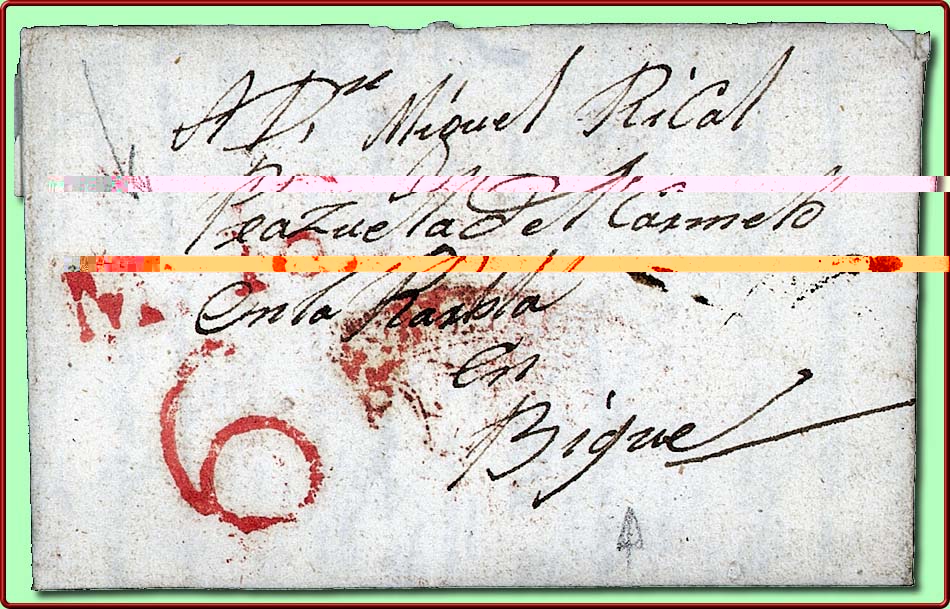 A Dn Miguel Rical
Peazuella del Carmelo
en la Rambla
en
Bique
6